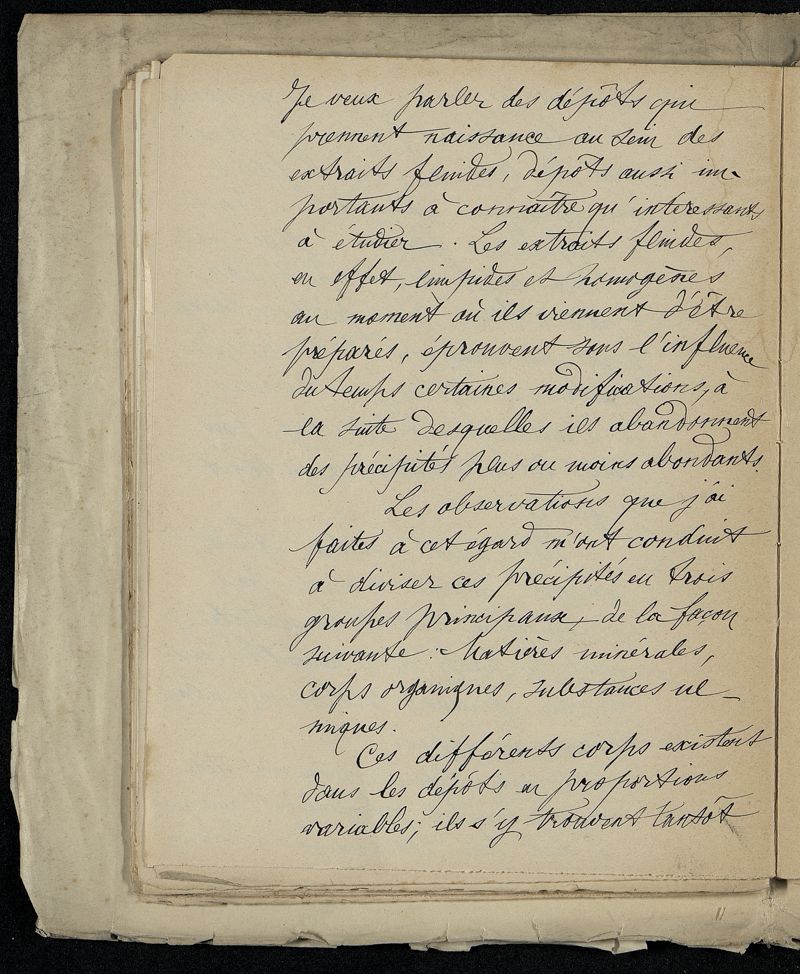 Je veux parler des dépôts qui
prennent naissance au sein des
extraits fluides, dépôts aussi im-
portants à connaître qu'intéressants
à étudier. Les extraits fluides,
en effet, limpides et homogènes
au moment où ils viennent d'être
préparés, éprouvent sous l'influence
du temps certaines modifications, à
la suite desquelles ils abandonnent
des précipités plus ou moins abondants.
Les observations que j'ai
faites à cet égard m'ont conduit
à diviser ces précipités en trois
groupes principaux, de la façon
suivante : Matières minérales,
corps organiques, substances ul-
miques.
Ces différents corps existent
dans les dépôts en proportions
variables; ils s'y trouvent tantôt
11